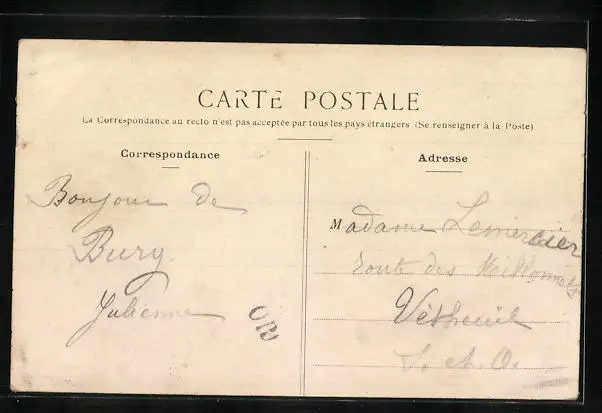 CARTE POSTALE
La Correspondance au recto n'est pas acceptée par tous les pays étrangers (Se renseigner à la Poste)
Correspondance
Bonjour de
Bury
Julienne
OR
Adresse
Madame Lemercier
route des
Vétheuil
S. et O.